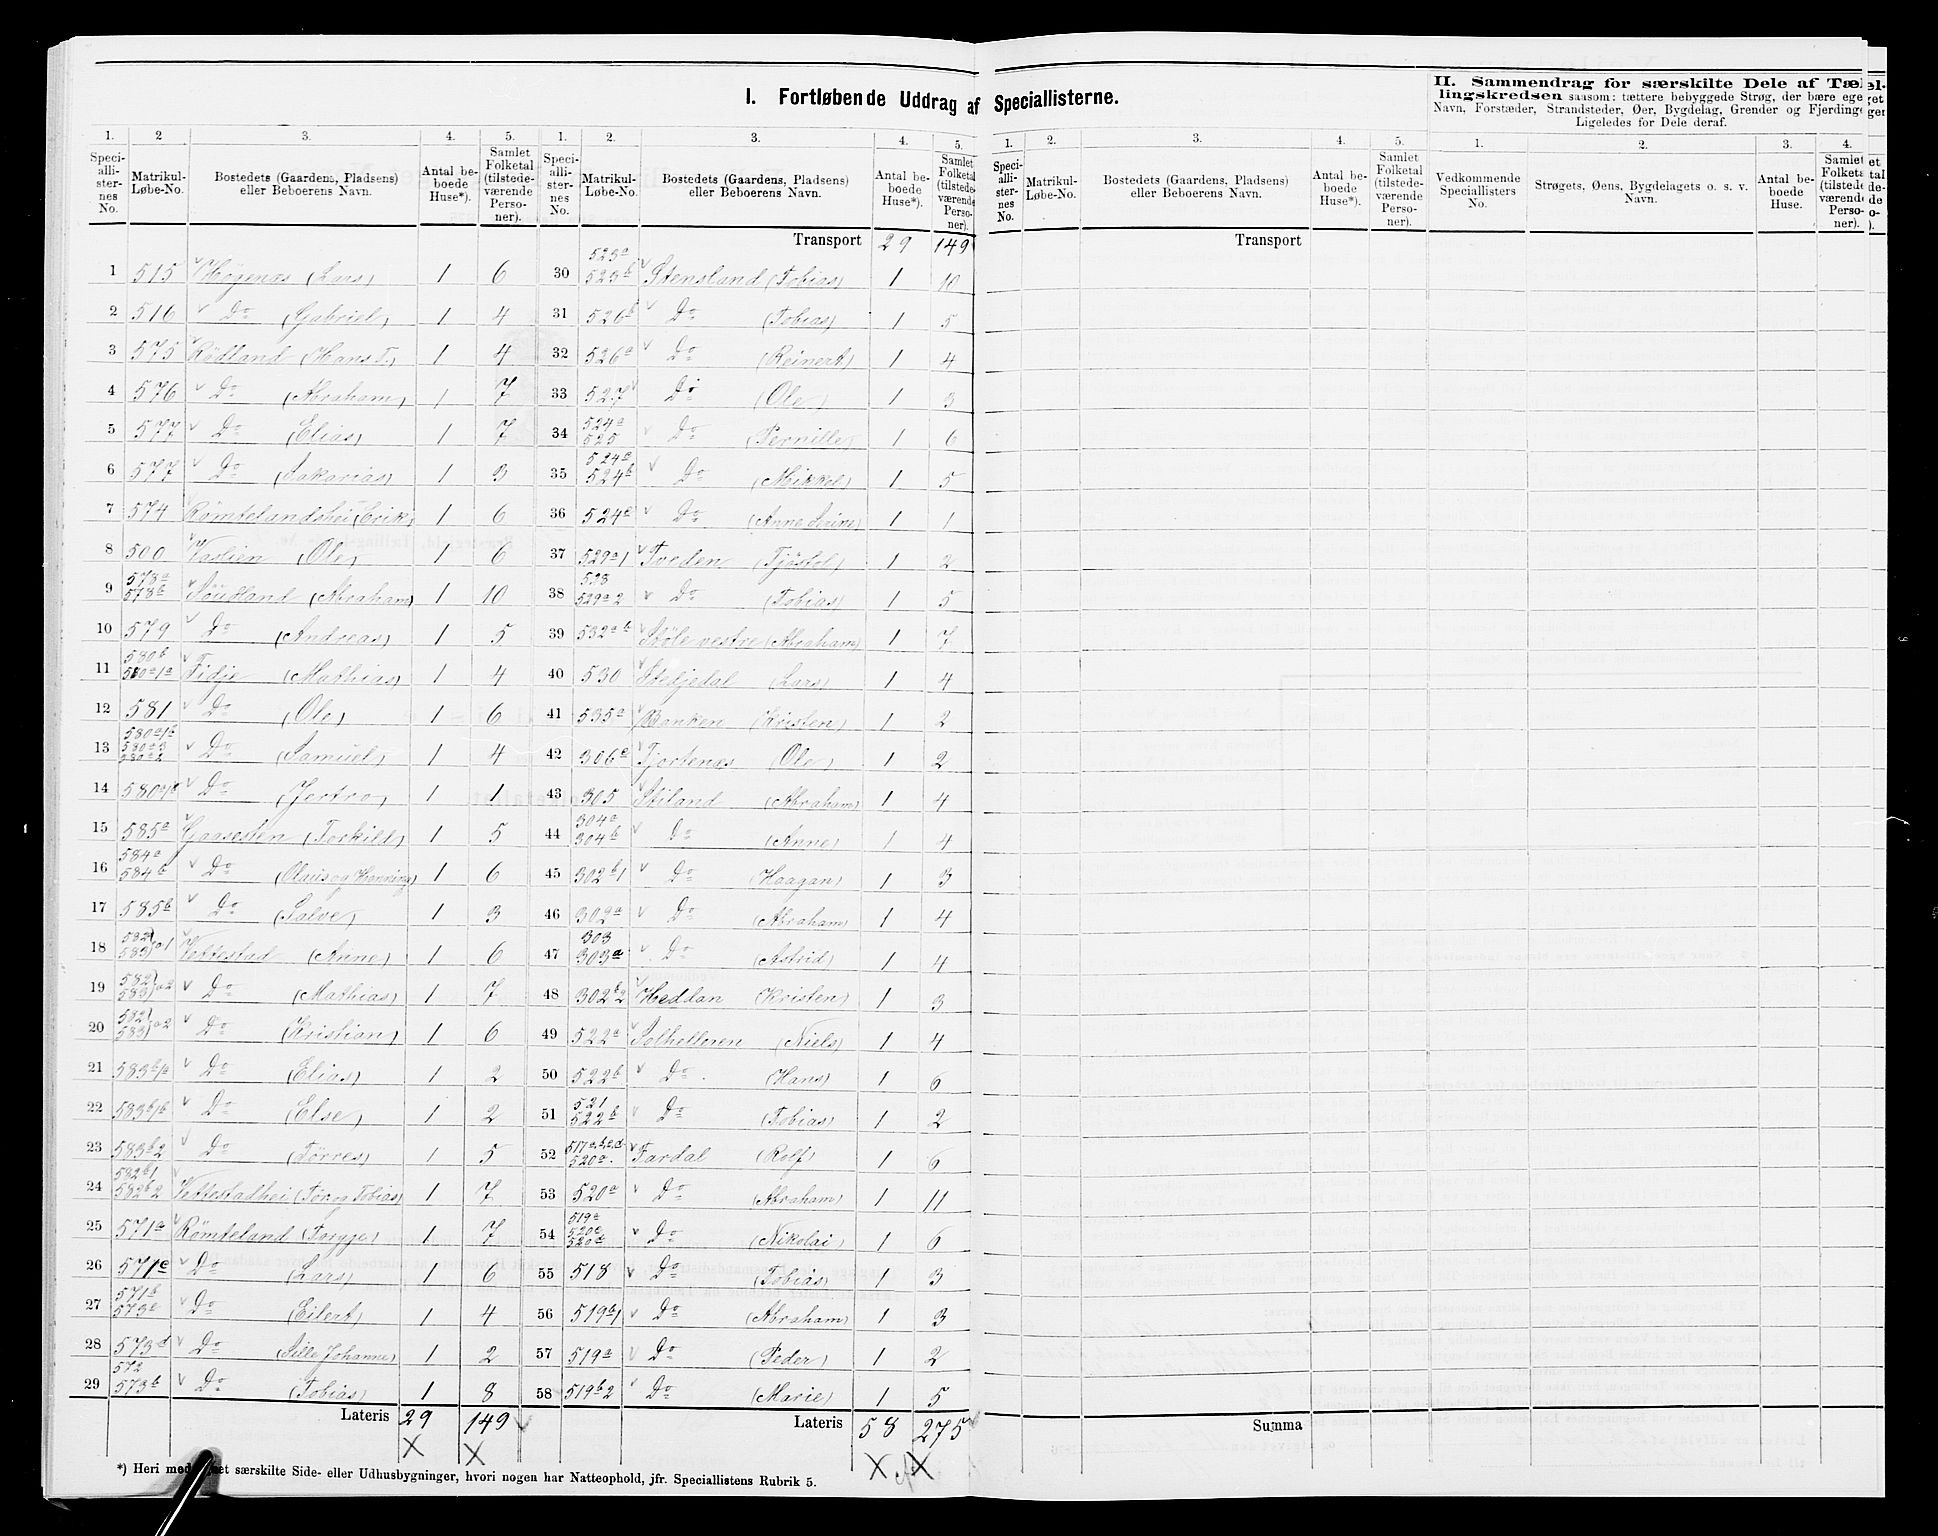 I. Fortløbende Uddrag af Speciallisterne.
II. Sammendrag for særskilte Dele af Tællingskredsen saasom: tættere bebyggede Strøg, der bære eget
Navn, Forstæder, Strandsteder, Øer, Bygdelag, Grender og Fjerdinger
Ligeledes for Dele deraf.
1. 2 3. 4. 5. 1. 2. 3. 4. 5. 1. 2. 3. 4. 5. 1. 2. 3. 4.
Speciallisternes No. Matrikul-Løbe-No. Bostedets (Gaardens, Pladsens) eller Beboerens Navn. Antal beboede Huse*). Samlet Folketal (tilstedeværende Personer).
Speciallisternes No. Matrikul-Løbe-No. Bostedets (Gaardens, Pladsens) eller Beboerens Navn. Antal beboede Huse*). Samlet Folketal (tilstedeværende Personer).
Speciallisternes No. Matrikul-Løbe-No. Bostedets (Gaardens, Pladsens) eller Beboerens Navn. Antal beboede Huse*). Samlet Folketal (tilstedeværende Personer).
Vedkommende Speciallisters No. Strøgets, Øens, Bygdelagets o. s. v. Navn. Antal beboede Huse. Samlet Folketal (tilstedeværende Personer).
1 515 Høgenæs (Lars) 1 6
2 516 Do (Gabriel) 1 4
3 575 Rødland (Hans T.) 1 4
4 576 Do (Abraham) 1 7
5 577 Do (Elias) 1 7
6 577 Do (Sakarias) 1 3
7 574 Rømtelandshei (Erik) 1 6
8 500 (Ole) 1 6
9 578a 578b (Abraham) 1 10
10 579 Do (Andreas) 1 5
11 580b 580a1a Tidje (Mathias) 1 4
12 581 Do (Ole) 1 6
13 580a1b 580a3 580a2 Do (Samuel) 1 4
14 Do (Jertro) 1 1
15 585a Gaasesten (Torkild) 1 5
16 584a 584b Do (Olaus og Henning) 1 6
17 585b Do (Salve) 1 3
18 582 583 a1 Vettestad (Anne) 1 6
19 582 583 a2 Do (Mathias) 1 7
20 582 583 a2 Do (Kristian) 1 6
21 583b1a Do (Elias) 1 2
22 583b1b Do (Else) 1 2
23 583b2 Do (Tørres) 1 5
24 582b1 582b2 Vettestadhei (Tør og Tobias) 1 7
25 571a Rømteland (Torgje) 1 7
26 571c Do (Lars) 1 6
27 571b 573c Do (Eilert) 1 4
28 573d Do (Sille Johanne) 1 2
29 572 573b Do (Tobias) 1 8
Lateris 29 149
Transport 29 149
30 523a 523b Stensland (Tobias) 1 10
31 526b Do (Tobias) 1 5
32 526a Do (Reinert) 1 4
33 527 Do (Ole) 1 3
34 524a 525 Do (Pernille) 1 6
35 524b Do (Mikkel) 1 5
36 Do (Anne Serine) 1 1
37 529a1 Tveden (Tjøstel) 1 2
38 528 529a2 Do (Tobias) 1 5
39 532ab Støle vestre (Abraham) 1 7
40 530 Steljedal (Lars) 1 4
41 535a Banken (Kristen) 1 2
42 306c Tjortenæs (Ole) 1 2
43 305 Stiland (Abraham) 1 4
44 304a 304b Do (Anne) 1 4
45 302b1 Do (Haagan) 1 3
46 302a Do (Abraham) 1 4
47 303 303a Do (Astrid) 1 4
48 302b2 Heddan (Kristen) 1 3
49 522a Solhelleren (Niels) 1 4
50 522b Do (Hans) 1 6
51 521 522b Do (Tobias) 1 2
52 517a.b.c.d 520a. Fardal (Rolf) 1 6
53 520a Do (Abraham) 1 11
54 519a 520c 520b Do (Nikolai) 1 6
55 518 Do (Tobias) 1 3
56 519b1 Do (Abraham) 1 3
57 519a Do (Peder) 1 2
58 519b2 Do (Marie) 1 5
Lateris 58 275
Transport
Summa
*) Heri med særskilte Side- eller Udhusbygninger, hvori nogen har Natteophold, jfr. Speciallistens Rubrik 5.